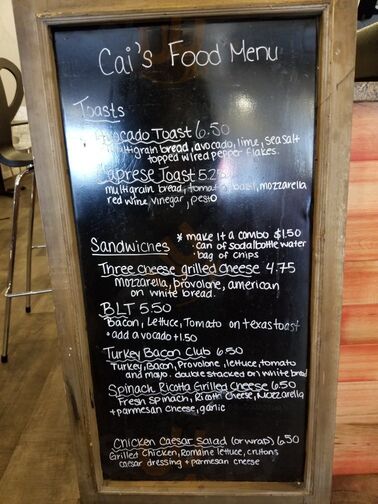 Cai's Food Menu
Toasts
Avocado Toast 6.50
multigrain bread, avocado, lime, sea salt
topped w/ red pepper flakes.
Caprese Toast 5.25
multigrain bread, tomato, basil, mozzarella
red wine vinegar, pesto
Sandwiches * make it a combo $1.50
· can of soda/bottle water
· bag of chips
Three cheese grilled cheese 4.75
mozzarella, provolone, american
on white bread.
BLT 5.50
Bacon, Lettuce, Tomato on texas toast
• add avocado +1.50
Turkey Bacon Club 6.50
Turkey, Bacon, Provolone, lettuce, tomato
and mayo. double stacked on white bread
Spinach Ricotta Grilled Cheese 6.50
Fresh Spinach, Ricotta Cheese, Mozzarella
+ parmesan cheese, garlic
Chicken Caesar Salad (or wrap) 6.50
Grilled Chicken, Romaine lettuce, crutons
caesar dressing + parmesan cheese